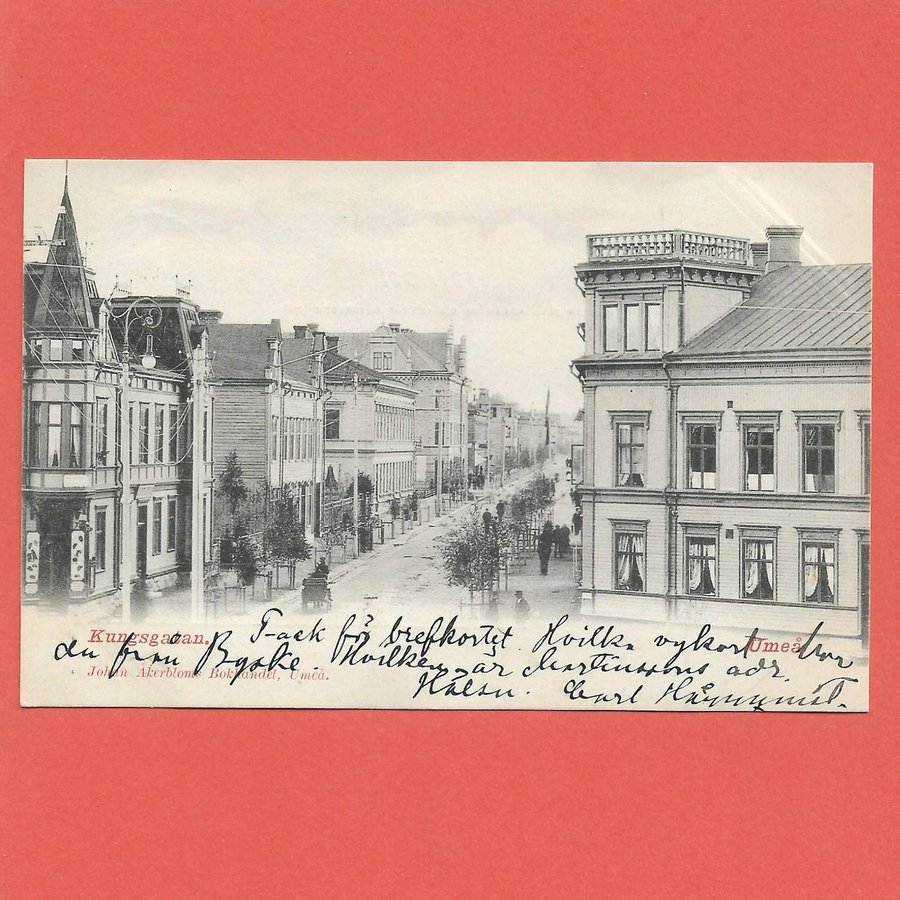 Kungsgatan.
Umeå
Tack fö brefkortet. Hvilk. vykort har
du från Byske. Hvilken är Martinssons adr.
Hälsn. Carl
Johan Åkerbloms Bokhandel, Umeå.